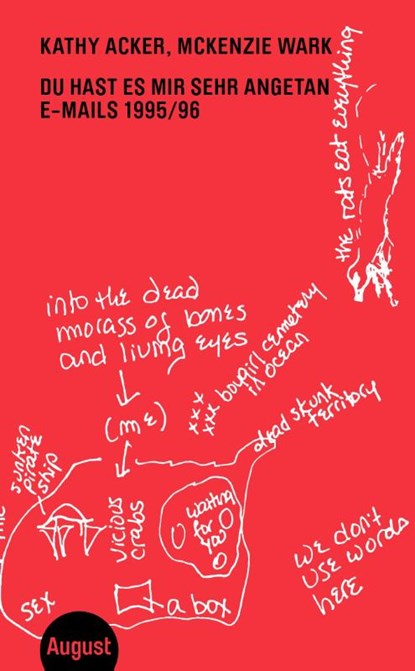 KATHY ACKER, MCKENZIE WARK
DU HAST ES MIR SEHR ANGETAN
E-MAILS 1995/96
the rats eat everything
into the dead
morass of bones
and living eyes
(me)
xxx
xxx
cemetery
in ocean
dead skunk
territory
sunken
pirate
ship
vicious
crabs
waiting
for
you
we don't
use words
here
sex
a box
August